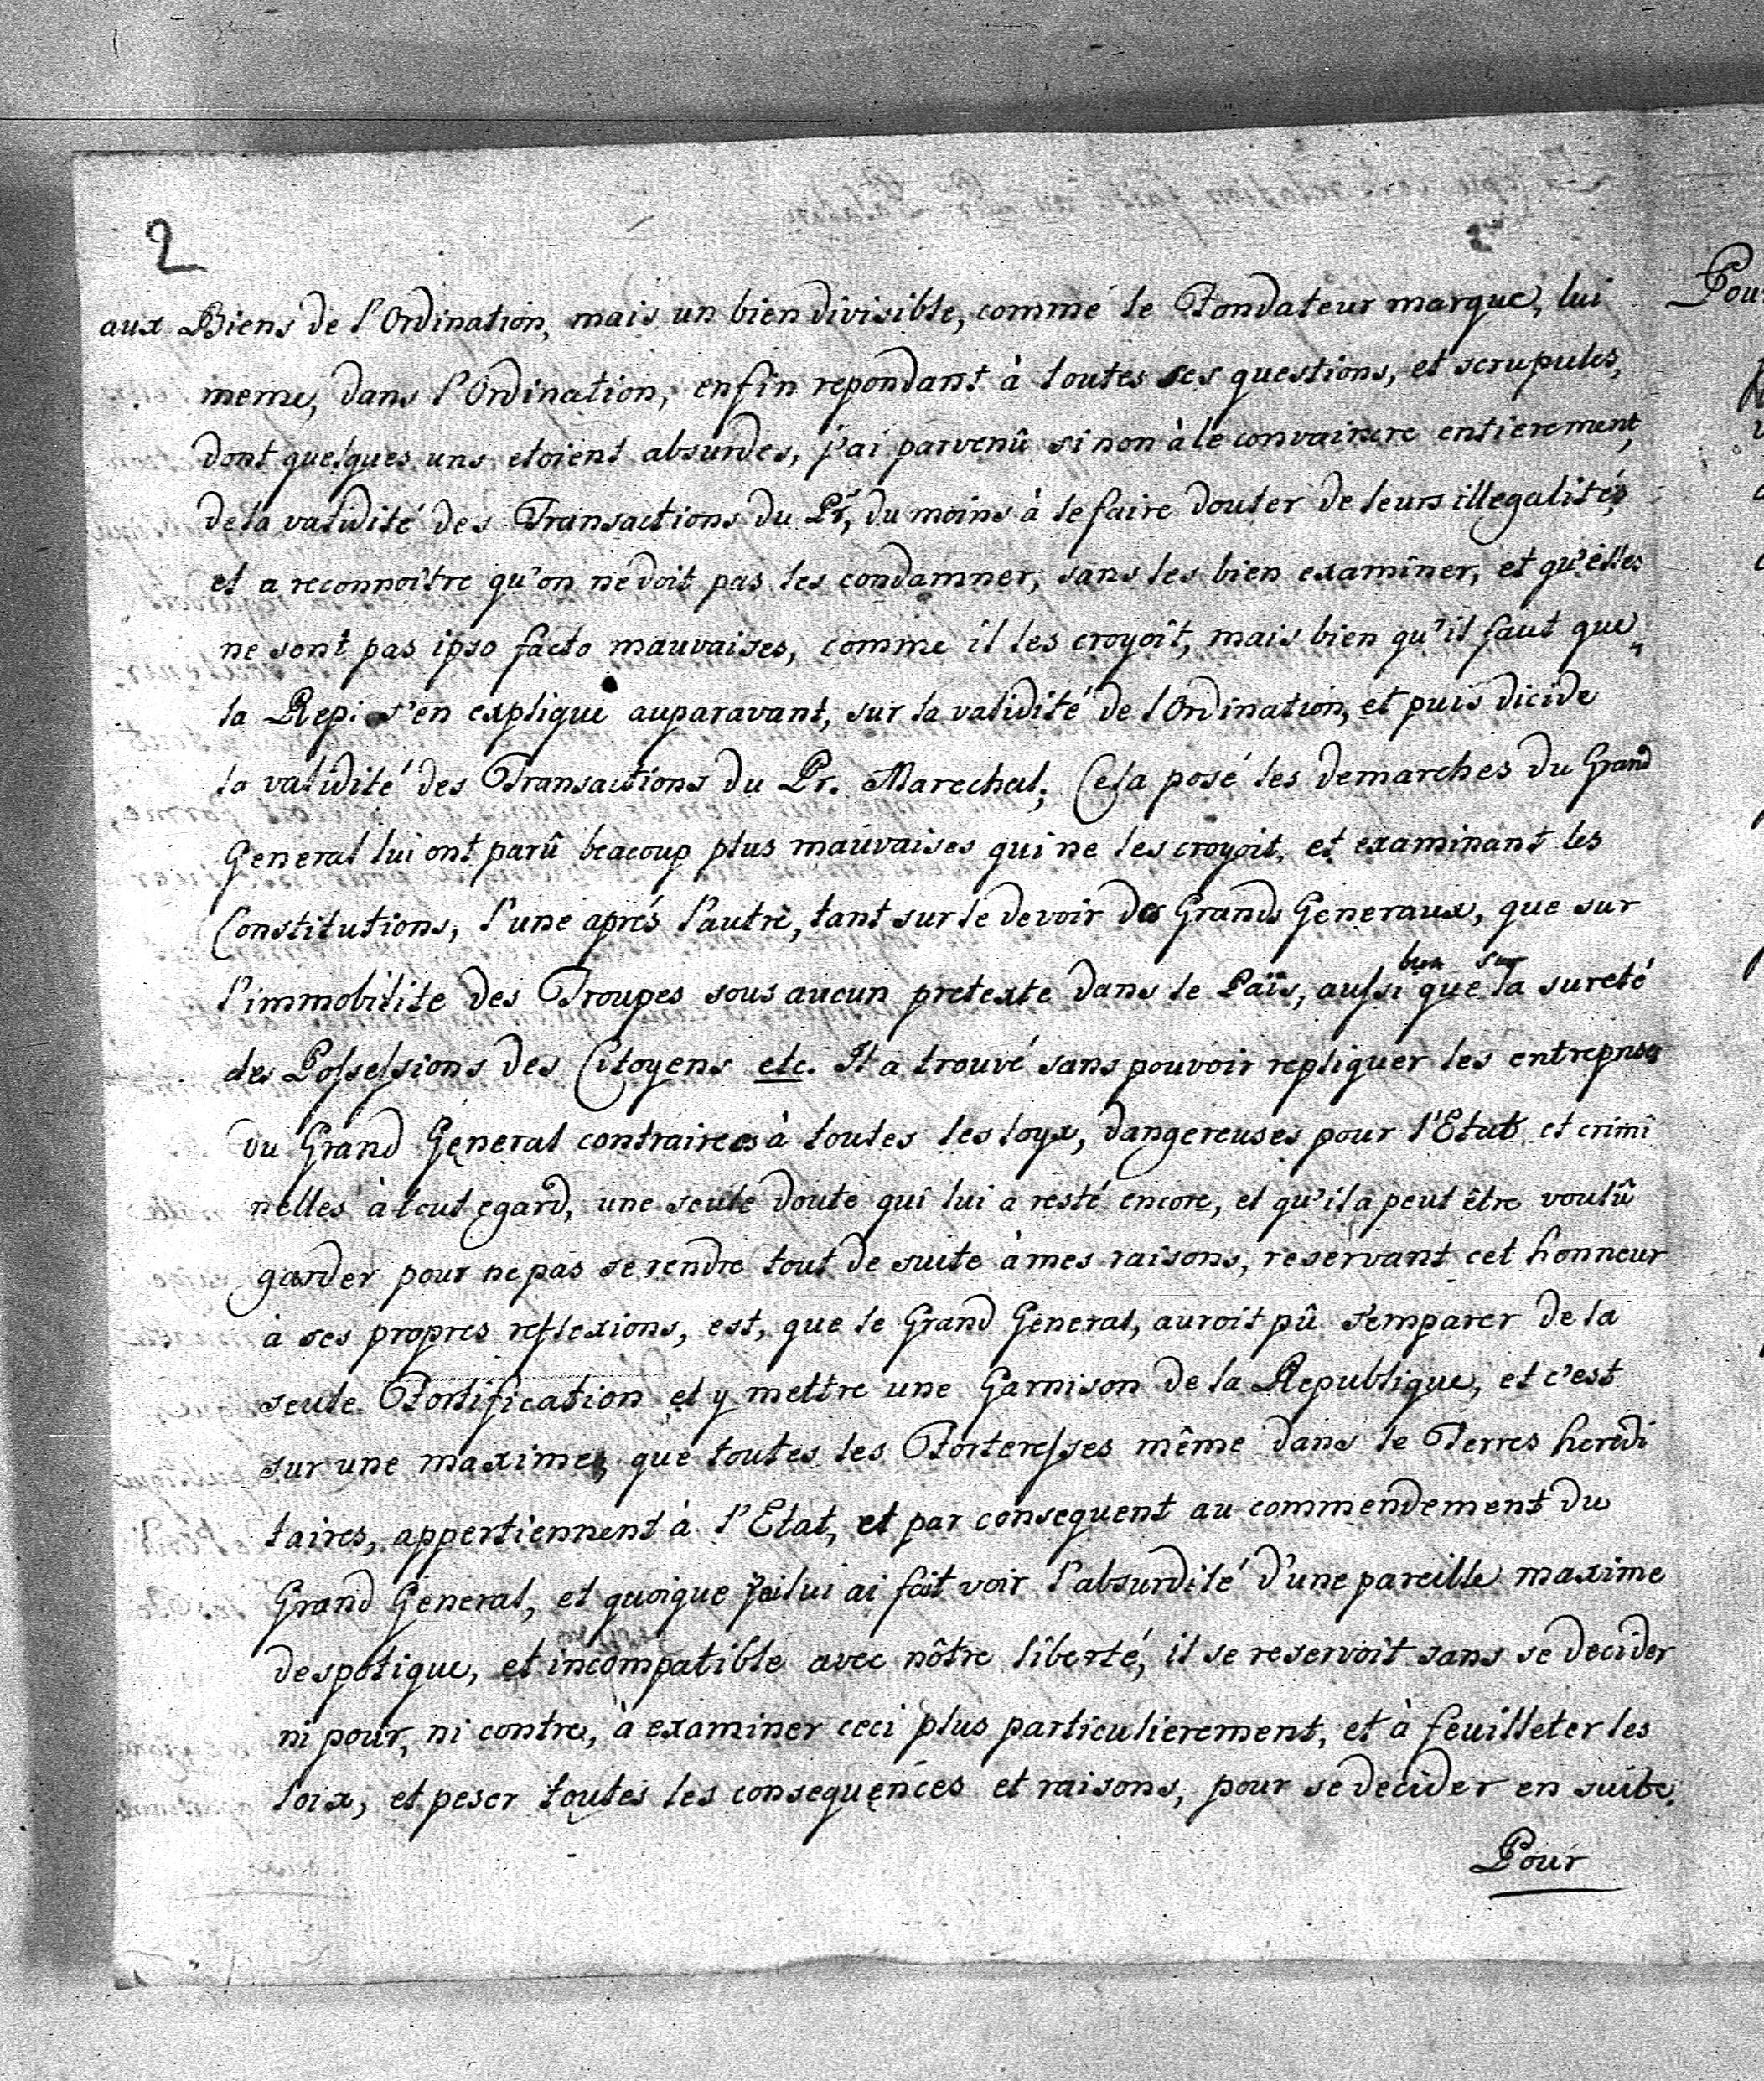 2
aux Biens de l'Ordination, mais un bien divisible, comme le Fondateur marque, lui
meme, dans l'Ordination, enfin repondant à toutes ses questions, et scrupules,
dont quelques uns etoient absurdes, j'ai parvenû si non à le convaincre entierement,
de la validité des Transactions du Pr, du moins à le faire douter de leurs illegalités,
et a reconnoître qu'on ne doit pas les condamner, sans les bien examîner, et qu'êlles
ne sont pas ipso facto mauvaises, comme il les croyoît, mais bien qu'il faut que
la Rep: s'en explique auparavant, sur la validité de l'Ordination, et puis dicide
la validité des Transactions du Pr. Marechal; Cela posé les demarches du Grand
General lui ont parû beacoup plus mauvaises qui ne les croyoit, et examinant les
Constitutions, l'une aprés l'autre, tant sur le devoir des Grands Generaux, que sur
bien sur
l'immobilite des Troupes sous aucun pretexte dans le Païs, aussi que la sureté
des Possessions des Citoyens etc. Il a trouvé sans pouvoir repliquer les entreprises
du Grand General contraires à toutes les loyx, dangereuses pour l'Etat et crimî
nelles à tout egard, une seule doute qui lui a resté encore, et qu'il a peut être voulû
garder pour ne pas se rendre tout de suite à mes raisons, reservant cet honneur
à ses propres reflexions, est, que le Grand General, auroit pû s'emparer de la
seule Fortification et y mettre une Garnison de la Republique, et c'est
sur une maxime, que toutes les Forteresses même dans le Terres heredi
taires, appertiennent à l'Etat, et par consequent au commendement du
Grand General, et quoique je lui ai fait voir l'absurdité d'une pareille maxime
despotique, et incompatible avec nôtre liberté, il se reservoit sans se decider
ni pour, ni contre, à examiner ceci plus particulierement, et à feuilleter les
loix, et peser toutes les consequences et raisons, pour se decider en suite.
Pour